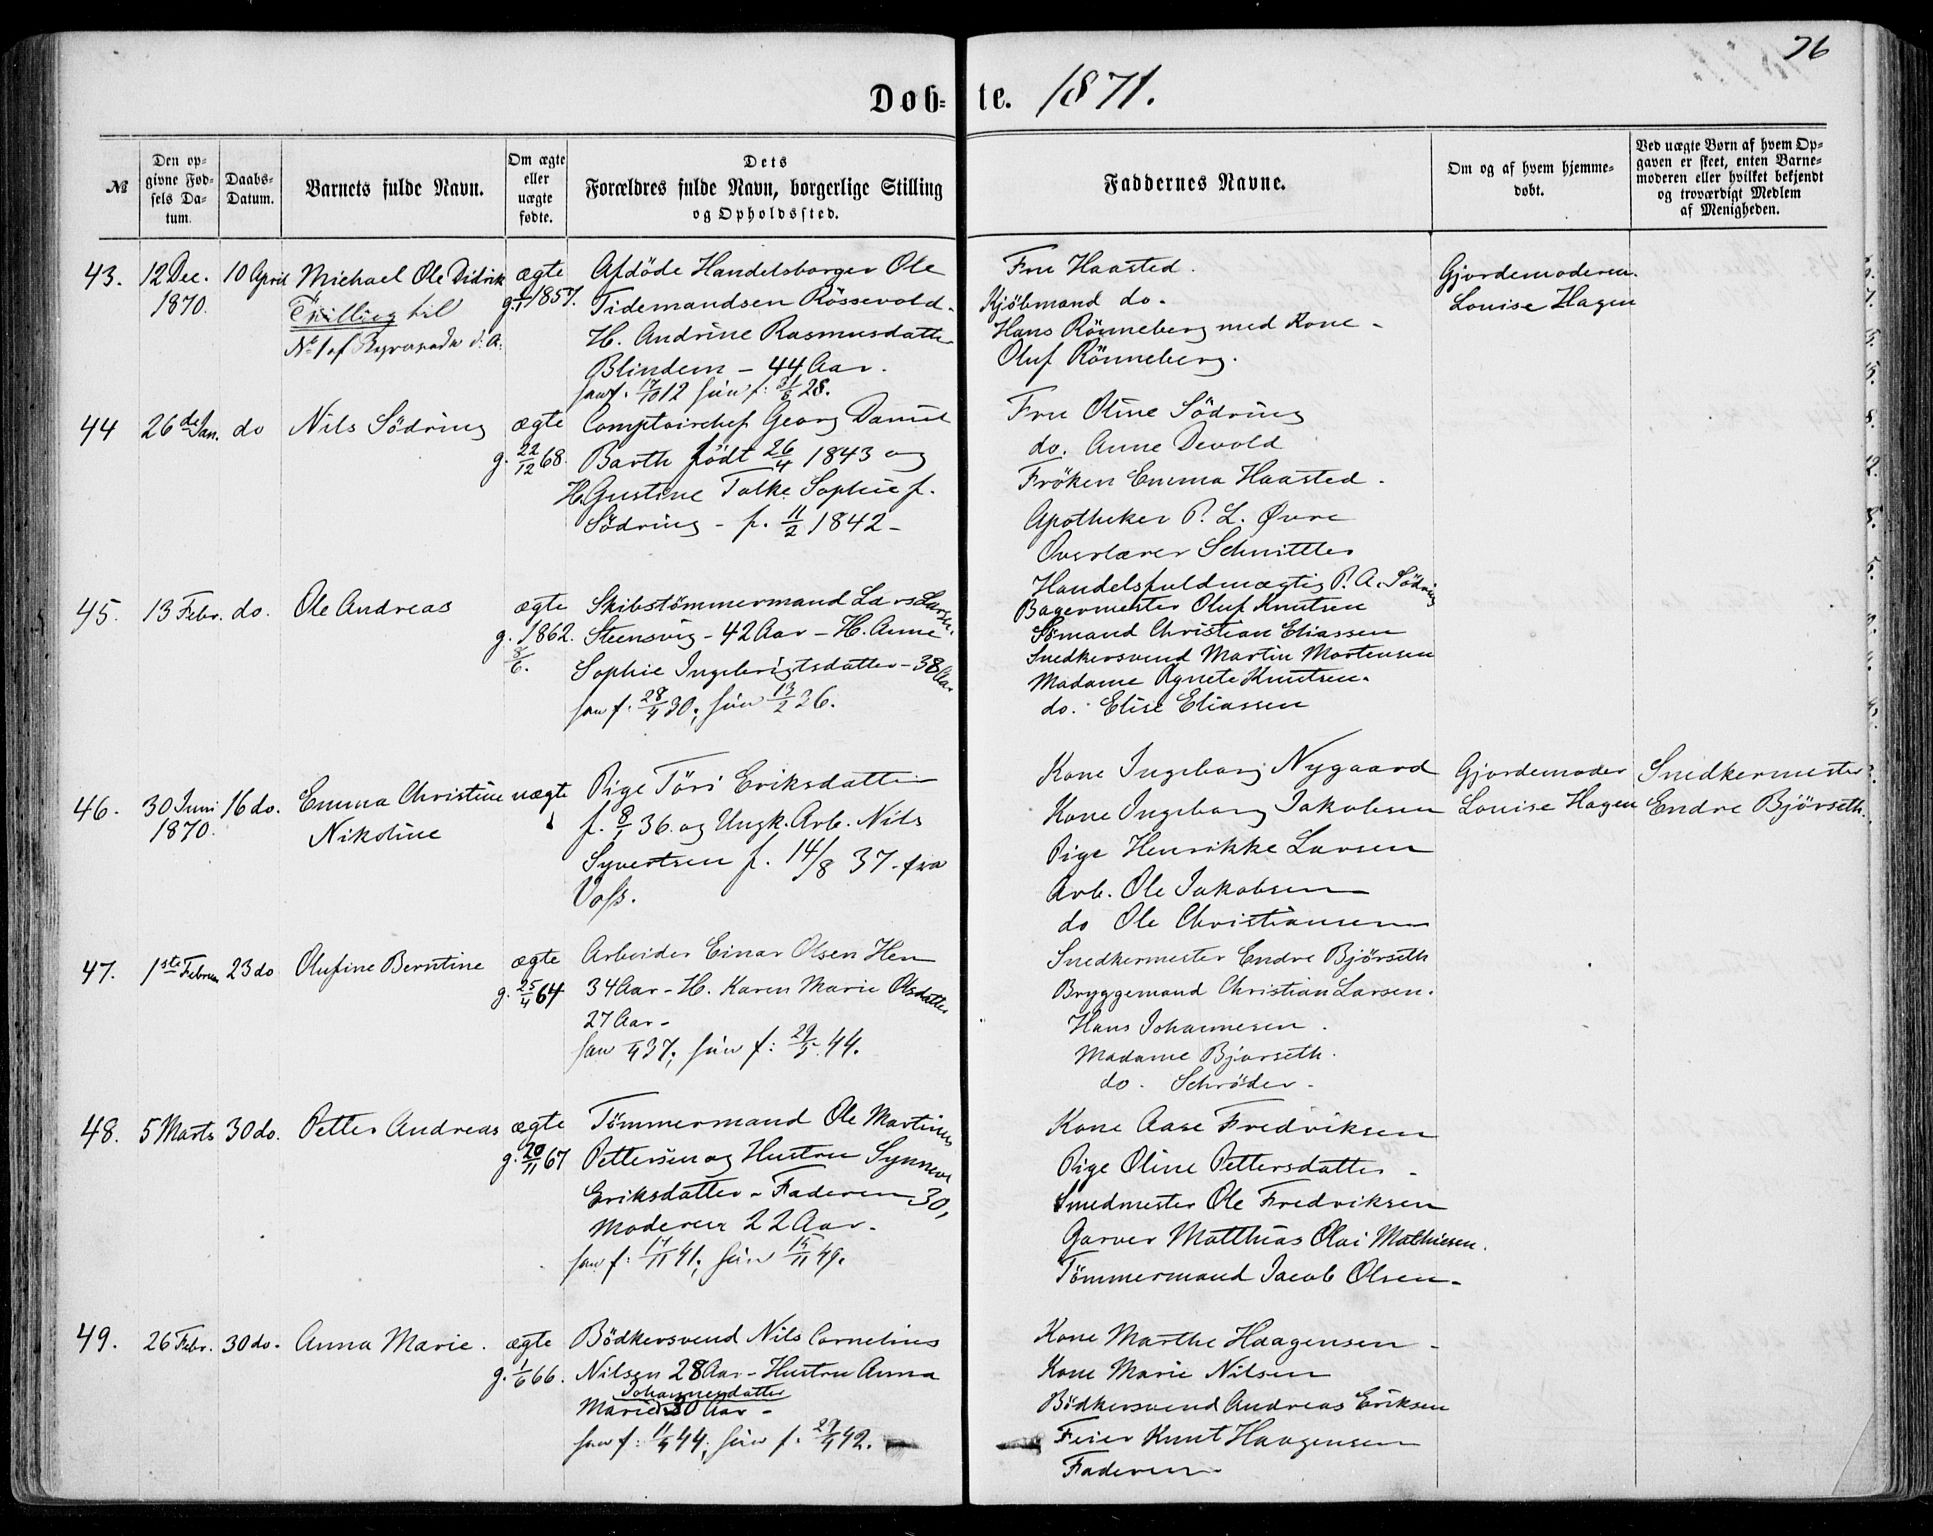 76
Døb- te. 1871.
№
Den op-
givne Fød-
sels Da-
tum.
Daabs-
Datum.
Barnets fulde Navn.
Om ægte
eller
uægte
fødte.
Dets
Forældres fulde Navn, borgerlige Stilling
og Opholdssted.
Faddernes Navne.
Om og af hvem hjemme-
døbt.
Ved uægte Børn af hvem Op-
gaven er skeet, enten Barne-
moderen eller hvilket bekjendt
og troværdigt Medlem
af Menigheden.
43.
12 Dec.
1870.
10 April
Michael Ole Didrik
Tvilling til
№ 1 af
ægte
1857.
Afdöde Handelsborger Ole
Tidemandsen Rössevold.
H. Andrine Rasmusdatter
Blindem - 44 Aar.
han f. 17/10 12 hun f: 21/8 28.
Fru Haasted.
Kjöbmand do.
Hans Rönneberg med Kone -
Oluf Rönneberg.
Gjordemoderen
Louise Hagen
44
26de Jan.
do
Nils Södring
ægte
g. 22/12 68.
Comptoirchef Georg Daniel
Barth födt 26/4 1843 og
H. Gustine Talke Sophie f.
Södring - f. 11/2 1842 -
Fru Oline Södring
do. Anne Devold
Fröken Emma Haasted.
Apotheker P. L. Øvre
Overlærer Schnittler
Handelsfuldmægtig P. A. Södring
45.
13 Febr.
do.
Ole Andreas
ægte
g. 1862.
8/6.
Skibstömmermand Lars Larsen
Steensvig - 42 Aar - H. Anne
Sophie Ingebrigtsdatter - 38 Aar
han f. 28/4 30; hun 13/2 36.
Bagermester Oluf Knutsen
Sömand Christian Eliassen
Snedkersvend Martin Mortensen
Madame Agnete Knutsen.
do. Elise Eliassen
46.
30 Juni
1870.
16 do.
Emma Christine
Nikoline
uægte
Pige Töri Eriksdatter
f. 8/1 36. og Ungk. Arb. Nils
Syvertsen f. 14/8 37. fra
Voss.
Kone Ingeborg Nygaard
Kone Ingeborg Jakobsen
Pige Henrikke Larsen
Arb. Ole Jakobsen
do Ole Christiansen
Gjordemoder
Louise Hagen
Snedkermester
Endre Bjørseth.
47.
1ste Februar
23 do
Olufine Berntine
ægte
g. 25/4 64
Arbeider Einar Olsen Hen
34 Aar - H. Karen Marie Olsdatter
27 Aar -
han 1/4 37; hun f: 29/5. 44.
Snedkermester Endre Bjørseth
Bryggemand Christian Larsen.
Hans Johannesen.
Madame Bjørseth.
do. Schröder.
48.
5 Marts
30 do.
Petter Andreas
ægte
g. 20/11 67
Tömmermand Ole Martinus
Pettersen og Hustru Synneve
Eriksdatter - Faderen 30,
Moderen 22 Aar.
han f: 17/11 41; hun 15/11 49.
Kone Aase Fredriksen
Pige Oline Pettersdatter -
Smedmester Ole Fredriksen
Garver Matthias Olai Mathiesen.
Tömmermand Jacob Olsen -
49.
26 Febr.
30 do.
Anna Marie.
ægte
g. 1/6 66.
Bödkersvend Nils Cornelius
Nilsen 28 Aar - Hustru Anna
Johannesdatter
Marie 30 Aar -
han f: 11/9 44; hun f. 29/9 42.
Kone Marthe Haagensen -
Kone Marie Nilsen
Bödkersvend Andreas Eriksen
Feier Knut Haagensen
Faderen.